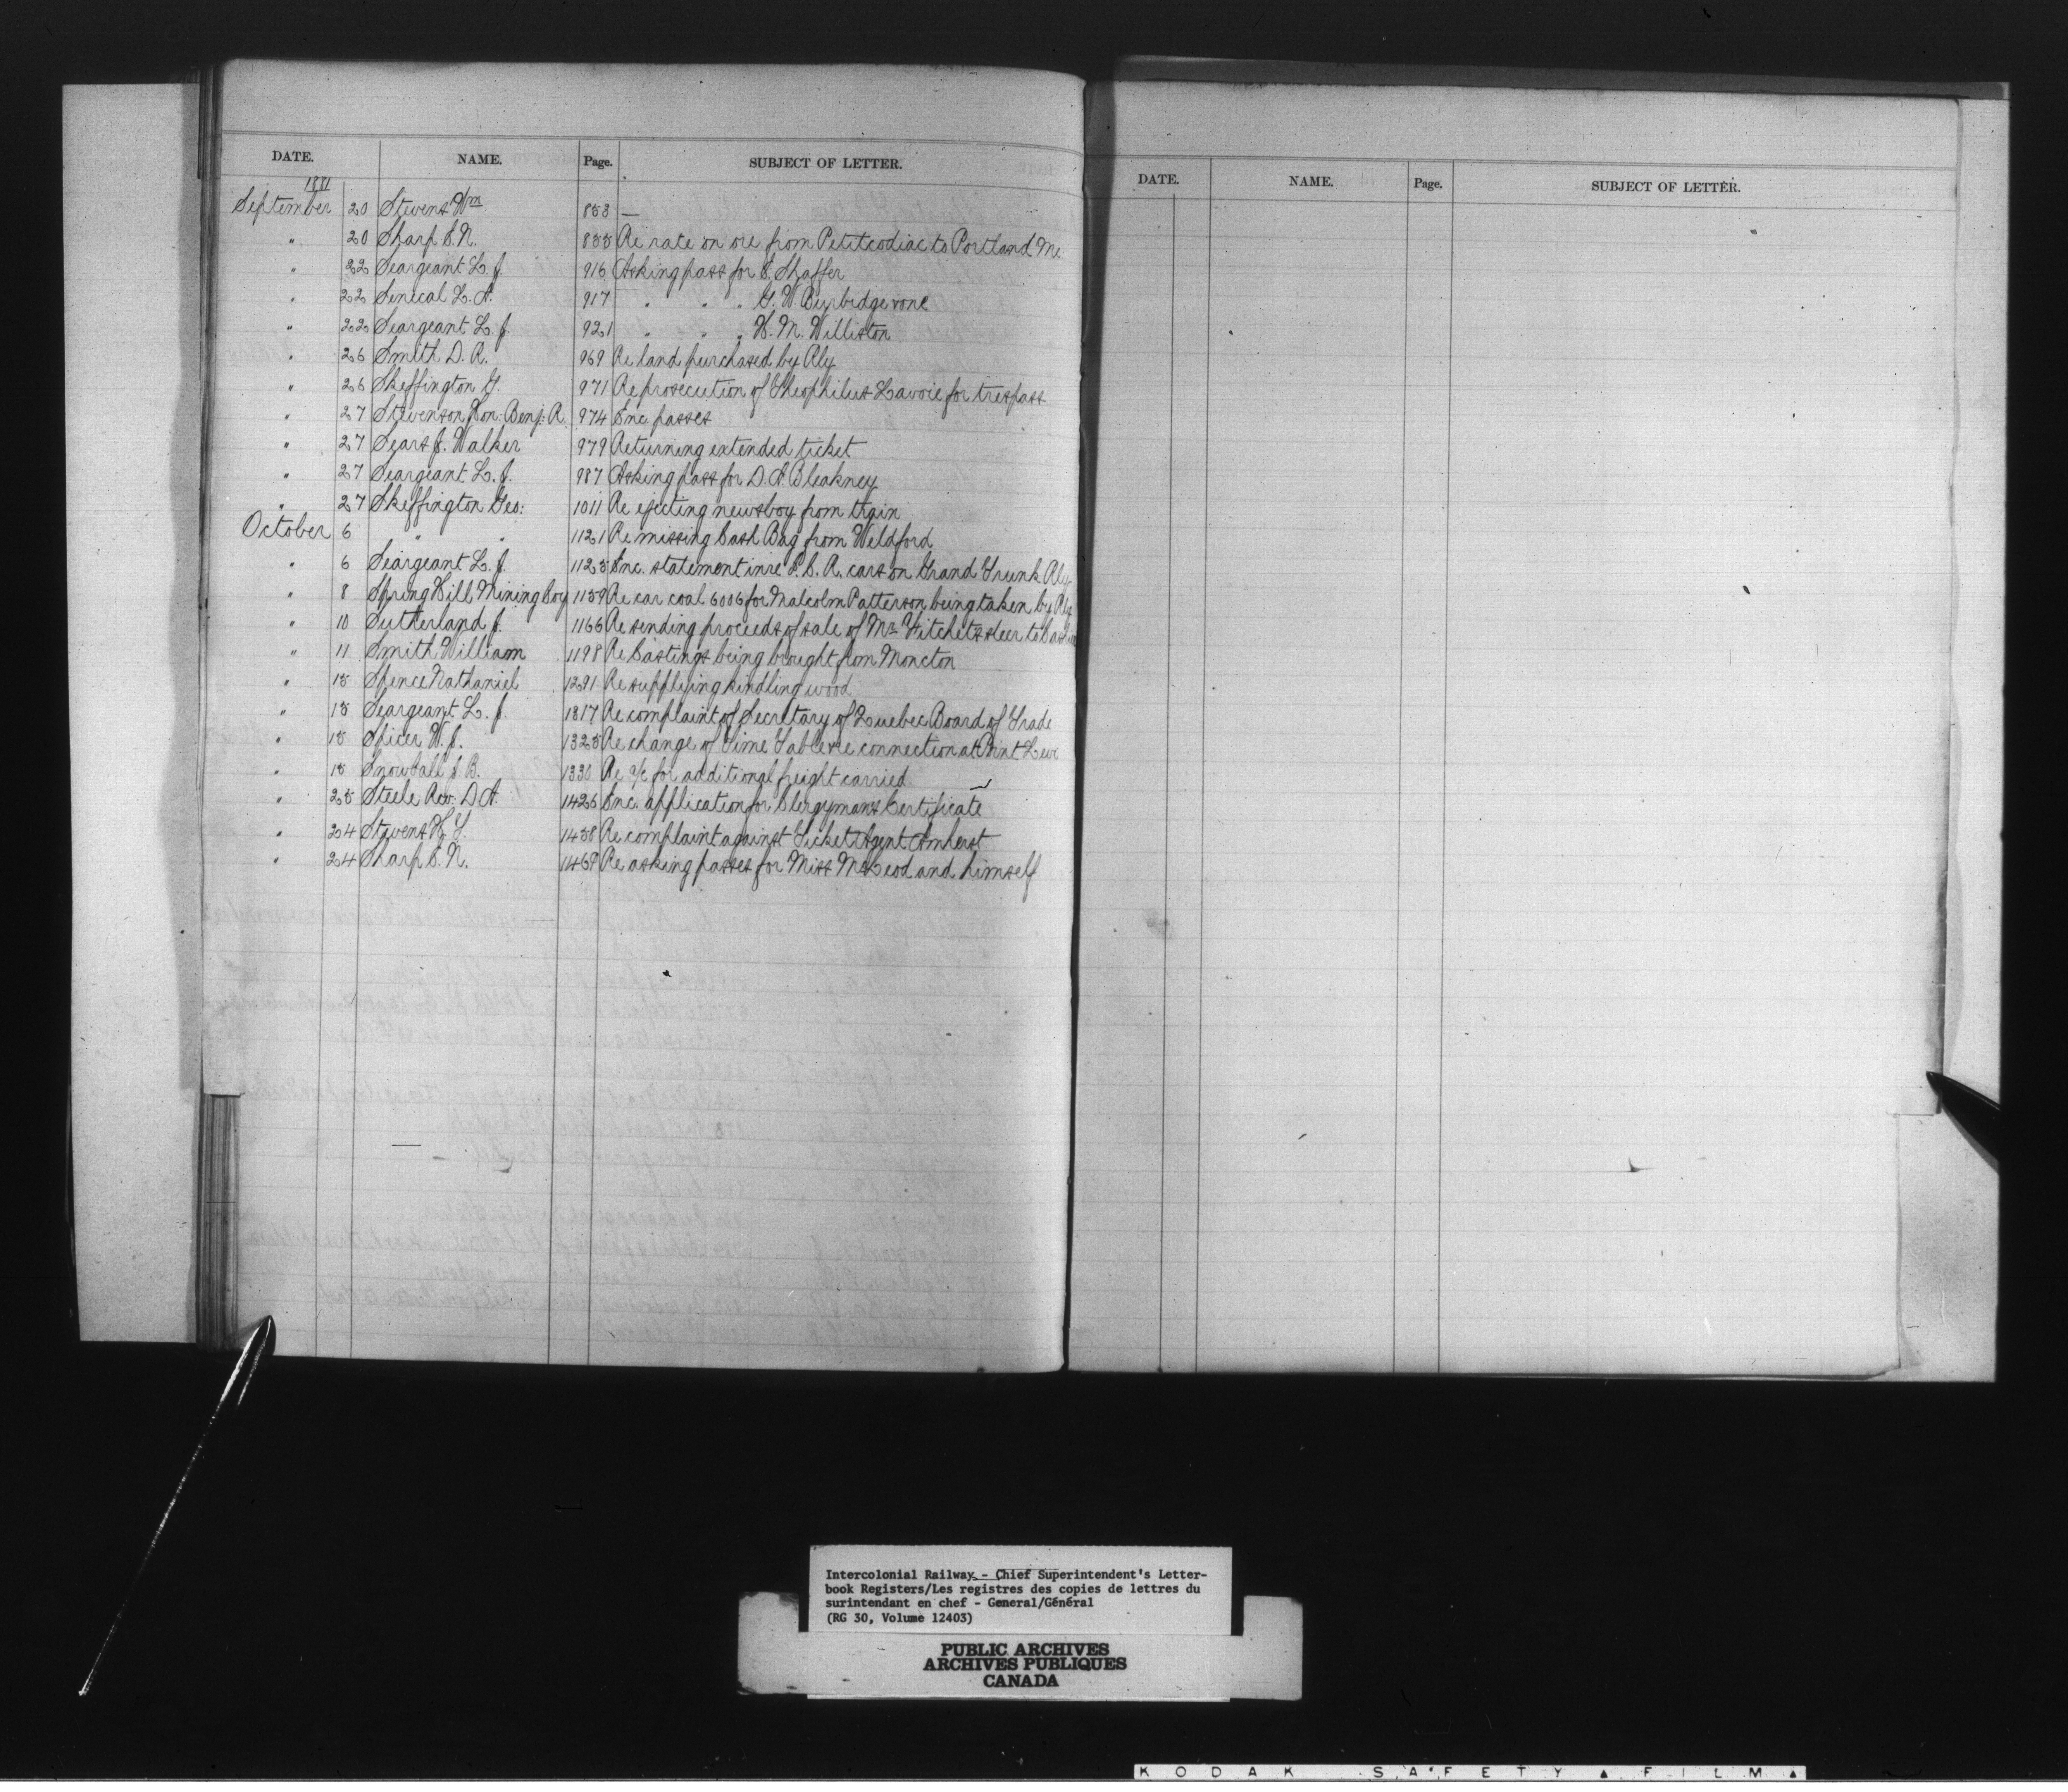 DATE. NAME. Page. SUBJECT OF LETTER.
1881
September 20 Stevens Wm 853 —
" 20 Sharp S. N. 855 Re rate on ore from Petitcodiac to Portland Me.
" 22 Seargeant L. J. 916 Asking pass for Shaffer
" 22 Senecal L. A. 917 " " " G. W. Burbidge
" 22 Seargeant L. J. 921 " " " H. M. Williston
" 26 Smith D. R. 969 Re land purchased by Rly
" 26 Skeffington G. 971 Re prosecution of Theophilus Lavoie for trespass
" 27 Stevenson Hon: Benj: R. 974 Enc passes
" 27 Sears J. Walker 979 Returning extended ticket
" 27 Seargeant L. J. 987 Asking pass for D. A. Bleakney
" 27 Skeffington Geo: 1011 Re ejecting newsboy from train
October 6 " " 1121 Re missing Cash Bag from Weldford
" 6 Seargeant L. J. 1123 Enc. statement in re I. C. R. cars on Grand Trunk Rly
" 8 Spring Hill Mining Coy 1159 Re car coal 6006 for Malcolm Patterson being taken by Rly
" 10 Sutherland J. 1166 Re sending proceeds of sale of Mr steer to
" 11 Smith William 1198 Re Castings being brought from Moncton
" 15 Spence Nathaniel 1291 Re supplying kindling wood
" 15 Seargeant L. J. 1317 Re complaint of Secretary of Quebec Board of Trade
" 15 Spicer W. J. 1325 Re change of Time Table re connection at Point Levi
" 15 Snowball J B. 1330 Re a/c for additional freight carried
" 23 Steele Rev. D A. 1426 Enc. application for Clergyman's Certificate
" 24 Stevens H. Y. 1438 Re complaint against Ticket Agent Amherst
" 24 Sharp S. N. 1469 Re asking passes for Miss McLeod and himself
DATE. NAME. Page. SUBJECT OF LETTER.
Intercolonial Railway - Chief Superintendent's Letter-
book Registers/Les registres des copies de lettres du
surintendant en chef - General/Général
(RG 30, Volume 12403)
PUBLIC ARCHIVES
ARCHIVES PUBLIQUES
CANADA
KODAK SAFETY FILM